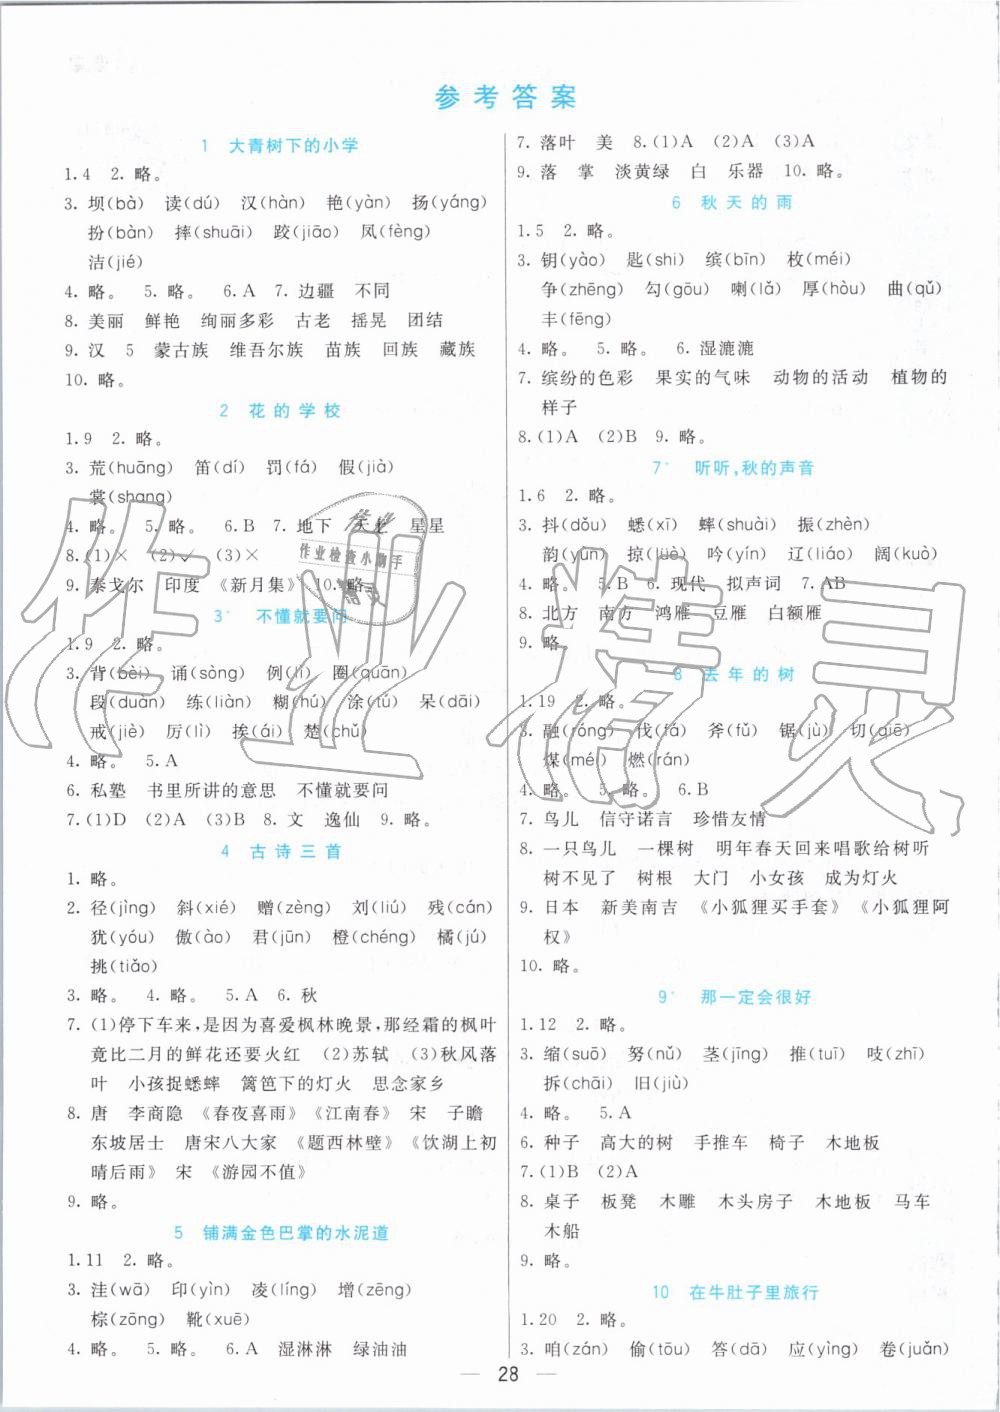 参考答案
1 大青树下的小学
1.4 2. 略。
3. 坝(bà) 读(dú) 汉(hàn) 艳(yàn) 扬(yáng)
扮(bàn) 摔(shuāi) 跤(jiāo) 凤(fèng)
洁(jié)
4. 略。 5. 略。 6. A 7. 边疆 不同
8. 美丽 鲜艳 绚丽多彩 古老 摇晃 团结
9. 汉 5 蒙古族 维吾尔族 苗族 回族 藏族
10. 略。
2 花的学校
1.9 2. 略。
3. 荒(huāng) 笛(dí) 罚(fá) 假(jià)
裳(shang)
4. 略。 5. 略。 6. B 7. 地下 天上 星星
8. (1)× (2)✓ (3)×
9. 泰戈尔 印度 《新月集》 10. 略。
3* 不懂就要问
1.9 2. 略。
3. 背(bèi) 诵(sòng) 例(lì) 圈(quān)
段(duàn) 练(liàn) 糊(hú) 涂(tú) 呆(dāi)
戒(jiè) 厉(lì) 挨(ái) 楚(chǔ)
4. 略。 5. A
6. 私塾 书里所讲的意思 不懂就要问
7. (1)D (2)A (3)B 8. 文 逸仙 9. 略。
4 古诗三首
1. 略。
2. 径(jìng) 斜(xié) 赠(zèng) 刘(liú) 残(cán)
犹(yóu) 傲(ào) 君(jūn) 橙(chéng) 橘(jú)
挑(tiǎo)
3. 略。 4. 略。 5. A 6. 秋
7. (1)停下车来,是因为喜爱枫林晚景,那经霜的枫叶
竟比二月的鲜花还要火红 (2)苏轼 (3)秋风落
叶 小孩捉蟋蟀 篱笆下的灯火 思念家乡
8. 唐 李商隐 《春夜喜雨》《江南春》 宋 子瞻
东坡居士 唐宋八大家 《题西林壁》《饮湖上初
晴后雨》 宋 《游园不值》
9. 略。
5 铺满金色巴掌的水泥道
1.11 2. 略。
3. 洼(wā) 印(yìn) 凌(líng) 增(zēng)
棕(zōng) 靴(xuē)
4. 略。 5. 略。 6. A 湿淋淋 绿油油
7. 落叶 美 8. (1)A (2)A (3)A
9. 落 掌 淡黄绿 白 乐器 10. 略。
6 秋天的雨
1.5 2. 略。
3. 钥(yào) 匙(shi) 缤(bīn) 枚(méi)
争(zhēng) 勾(gōu) 喇(lǎ) 厚(hòu) 曲(qǔ)
丰(fēng)
4. 略。 5. 略。 6. 湿漉漉
7. 缤纷的色彩 果实的气味 动物的活动 植物的
样子
8. (1)A (2)B 9. 略。
7* 听听,秋的声音
1.6 2. 略。
3. 抖(dǒu) 蟋(xī) 蟀(shuài) 振(zhèn)
韵(yùn) 掠(lüè) 吟(yín) 辽(liáo) 阔(kuò)
4. 略。 5. B 6. 现代 拟声词 7. AB
8. 北方 南方 鸿雁 豆雁 白额雁
9. 略。
8 去年的树
1.19 2. 略。
3. 融(róng) 伐(fá) 斧(fǔ) 锯(jù) 切(qiē)
煤(méi) 燃(rán)
4. 略。 5. 略。 6. B
7. 鸟儿 信守诺言 珍惜友情
8. 一只鸟儿 一棵树 明年春天回来唱歌给树听
树不见了 树根 大门 小女孩 成为灯火
9. 日本 新美南吉 《小狐狸买手套》《小狐狸阿
权》
10. 略。
9* 那一定会很好
1.12 2. 略。
3. 缩(suō) 努(nǔ) 茎(jīng) 推(tuī) 吱(zhī)
拆(chāi) 旧(jiù)
4. 略。 5. A
6. 种子 高大的树 手推车 椅子 木地板
7. (1)B (2)A
8. 桌子 板凳 木雕 木头房子 木地板 马车
木船
9. 略。
10 在牛肚子里旅行
1.20 2. 略。
3. 咱(zán) 偷(tōu) 答(dā) 应(yìng) 卷(juǎn)
— 28 —
作业
作业检查小助手
精灵
作业精灵